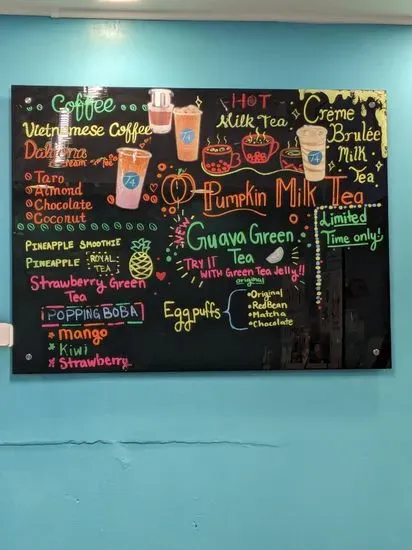 Coffee
Vietnamese Coffee
Dalgona
Cream
Taro
Almond
Chocolate
Coconut
Pineapple Smoothie
Pineapple Royal Tea
Strawberry Green Tea
Popping Boba
mango
Kiwi
Strawberry
74
74
HOT
Milk Tea
Pumpkin Milk Tea
NEW
Guava Green
Tea
Try It
with Green Tea Jelly!!
original
Eggpuffs
Original
RedBean
Matcha
Chocolate
74
Crème
Brulée
Milk
Tea
Limited
Time only!